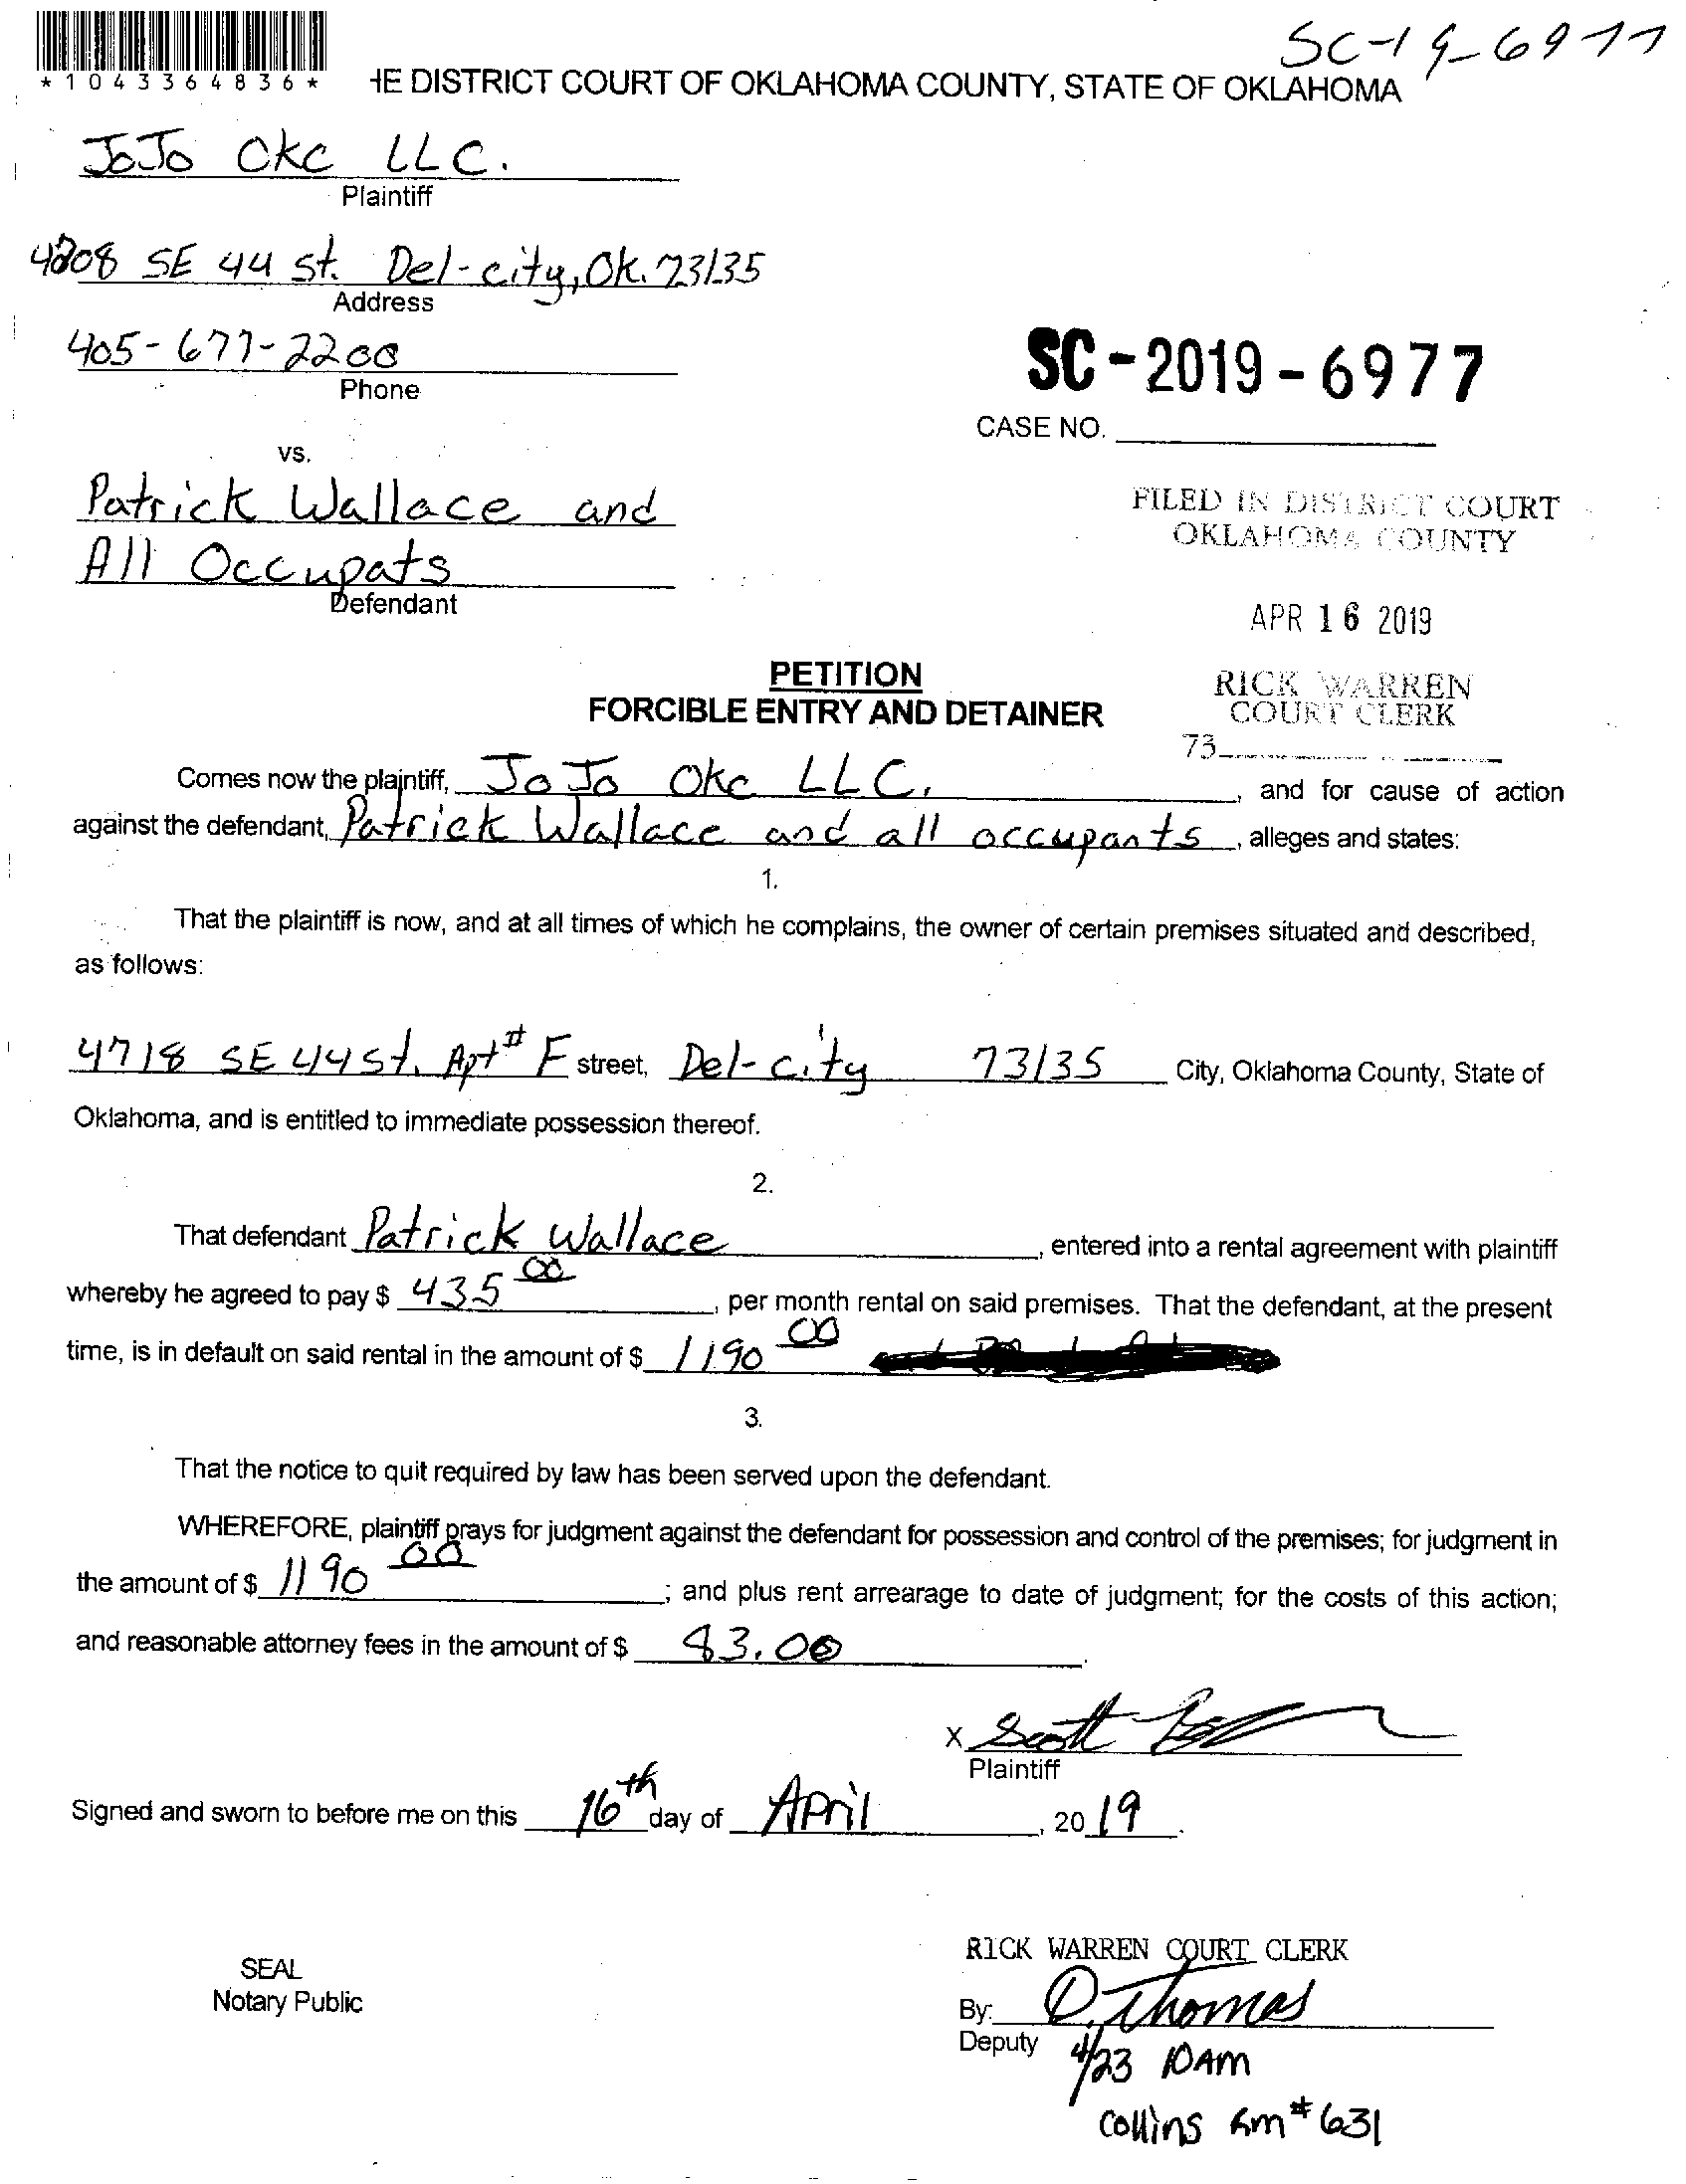 SC-19-6977
*1043364836*
HE DISTRICT COURT OF OKLAHOMA COUNTY, STATE OF OKLAHOMA
JoJo OKC LLC.
Plaintiff
4808 SE 44 St. Del-city, Ok. 73135
Address
405-677-2200
Phone
SC-2019-6977
CASE NO.
vs.
Patrick Wallace and
All Occupats
Defendant
FILED IN DISTRICT COURT
OKLAHOMA COUNTY
APR 16 2019
RICK WARREN
COURT CLERK
73
PETITION
FORCIBLE ENTRY AND DETAINER
Comes now the plaintiff, JoJo OKC LLC. , and for cause of action
against the defendant, Patrick Wallace and all occupants , alleges and states:
1.
That the plaintiff is now, and at all times of which he complains, the owner of certain premises situated and described,
as follows:
4718 SE 44 St. Apt # F street, Del-city 73135 City, Oklahoma County, State of
Oklahoma, and is entitled to immediate possession thereof.
2.
That defendant Patrick Wallace , entered into a rental agreement with plaintiff
whereby he agreed to pay $ 435 00 , per month rental on said premises. That the defendant, at the present
time, is in default on said rental in the amount of $ 1190 00
3.
That the notice to quit required by law has been served upon the defendant.
WHEREFORE, plaintiff prays for judgment against the defendant for possession and control of the premises; for judgment in
the amount of $ 1190 00 ; and plus rent arrearage to date of judgment; for the costs of this action;
and reasonable attorney fees in the amount of $ 83.00 .
X Scott
Plaintiff
Signed and sworn to before me on this 16th day of April , 20 19 .
SEAL
Notary Public
RICK WARREN COURT CLERK
By: D. Thomas
Deputy
4/23 10AM
Collins Rm # 631